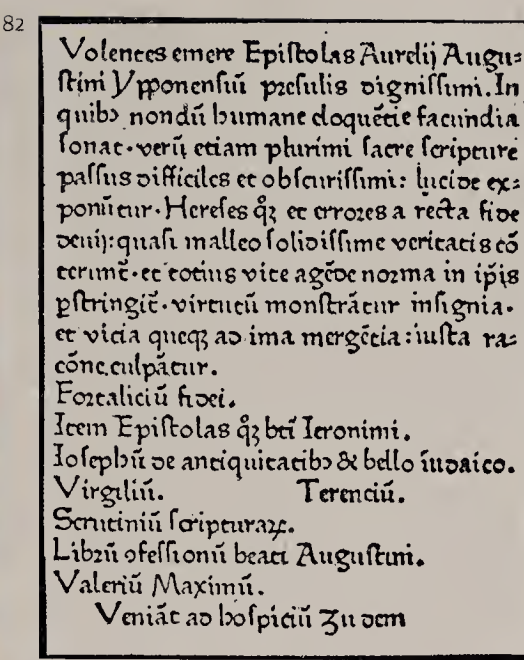 82
Volentes emere Epistolas Aurelij Augu⸗
stini Ypponensiū presulis dignissimi. In
quibꝫ nondū humane eloquētie facundia
sonat. verū etiam plurimi sacre scripture
passus difficiles et obscurissimi: lucide ex⸗
ponūtur. Hereses qꝫ et errores a recta fide
deuij: quasi malleo solidissime veritatis cō
terunt̄. et totius vite agēde norma in ip̄is
ꝑstringit̄. virtutū monstrātur insignia.
et vicia queqꝫ ad ima mergētia: iusta ra⸗
cōne culpātur.
Fortaliciū fidei.
Item Epistolas q̄ꝫ bt̄i Ieronimi.
Iosephū de antiquitatibꝫ & bello iudaico.
Virgiliū. Terenciū.
Scrutiniū scripturaꝝ.
Librū ꝯfessionū beati Augustini.
Valeriū Maximū.
Veniāt ad hospiciū Zu dem